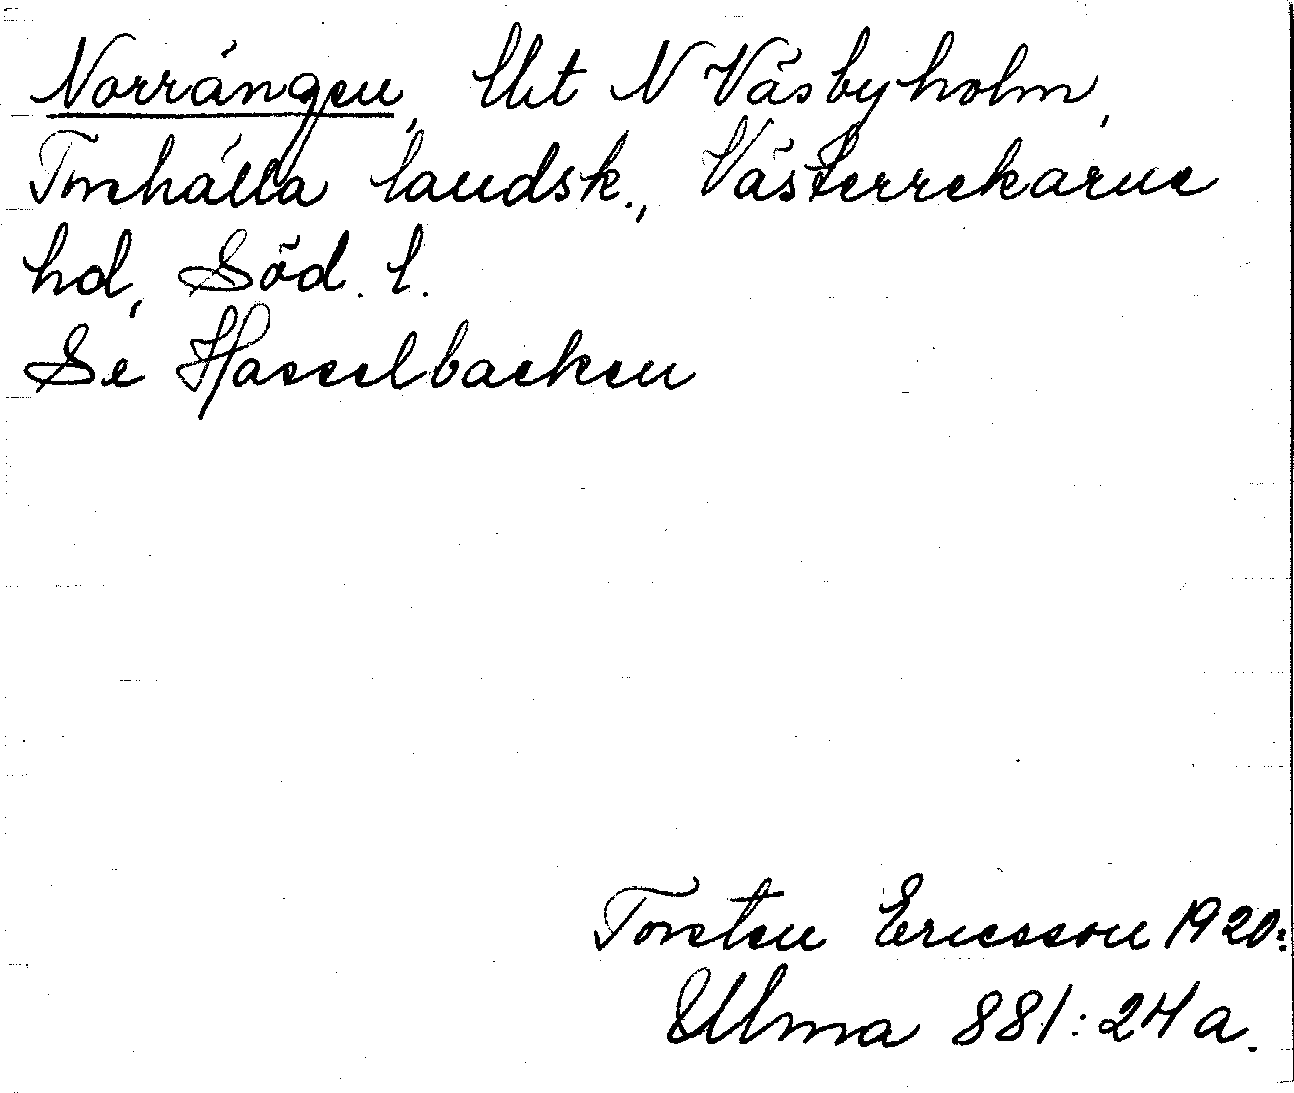 Norrängen, lht N Väsbyholm,
Torshälla landsk., Västerrekarne
hd, Söd. l.
Se Hasselbacken
Torsten Ericsson 1920:
Ulma 881:24a.